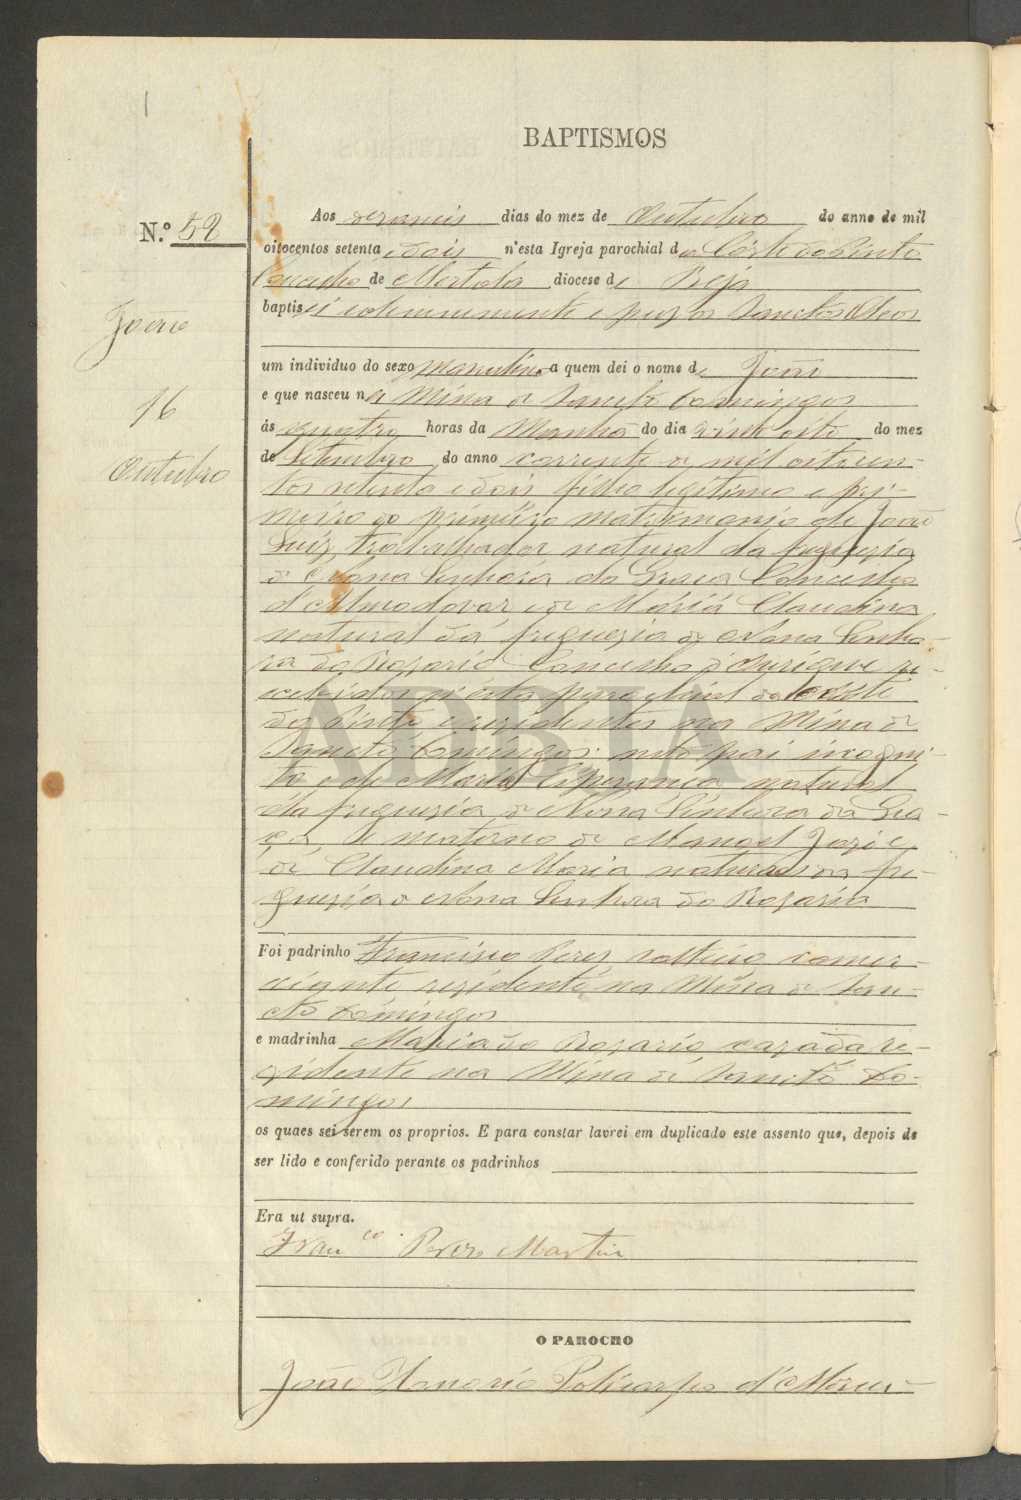 BAPTISMOS
N.º 52
João
16
Outubro
Aos dezaseis dias do mez de Outubro do anno de mil
oitocentos setenta e dois n'esta Igreja parochial da Córte do Pinto
Concelho de Mertola diocese de Beja
baptisei solemnemente e puz os Sanctos Oleos
um individuo do sexo masculino a quem dei o nome de João
e que nasceu na Mina de Sancto Domingos
ás quatro horas da Manhã do dia vinte oito do mez
de Setembro do anno corrente de mil oitocen-
tos setenta e dois filho legitimo e pri-
meiro do primeiro matrimonio de João
Luiz, trabalhador natural da freguezia
de Nossa Senhora da Graça Concelho
d'Almodovar, e de Máriá Claudina
natural dá freguezia de Nossa Senho-
ra do Rozario Concelho d'Ourique re-
cebidos n'ésta parochial da Corte
do Pinto e rezidentes na Mina de
Sancto Domingos: neto pai incogni-
to e de Maria Esperança natural
da freguezia de Nossa Senhora da Gra-
ça, e materno de Manoel Jozé e
de Claudina Maria naturaes da fre-
guezia de Nossa Senhora do Rozario
Foi padrinho Francisco Peres solteiro comer-
ciante rezidente na Mina de San-
cto Domingos
e madrinha Maria do Rozario cazada re-
zidente na Mina de Sancto Do-
mingos
os quaes sei serem os proprios. E para constar lavrei em duplicado este assento que, depois de
ser lido e conferido perante os padrinhos
Era ut supra.
Fran.co Peres Martin
O PAROCHO
João Polycarpo d'
ADBJA